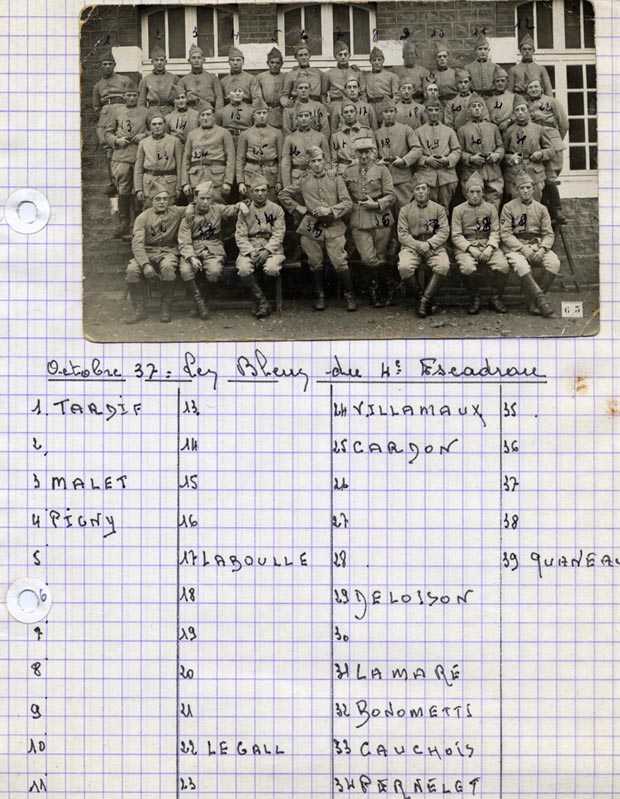 Octobre 37 : Les Bleus du 4e Escadron
1. TARDIF 13 24 VILLAMAUX 35.
2. 14 25 CARDON 36
3 MALET 15 26 37
4 PIGNY 16 27 38
5 17 LABOULLE 28. 39 QUANEAU
6 18 29 DELOISON
7 19 30
8 20 31 LAMARÉ
9 21 32 BONOMETTI
10 22 LE GALL 33 CAUCHOIS
11 23 34 PERNELET